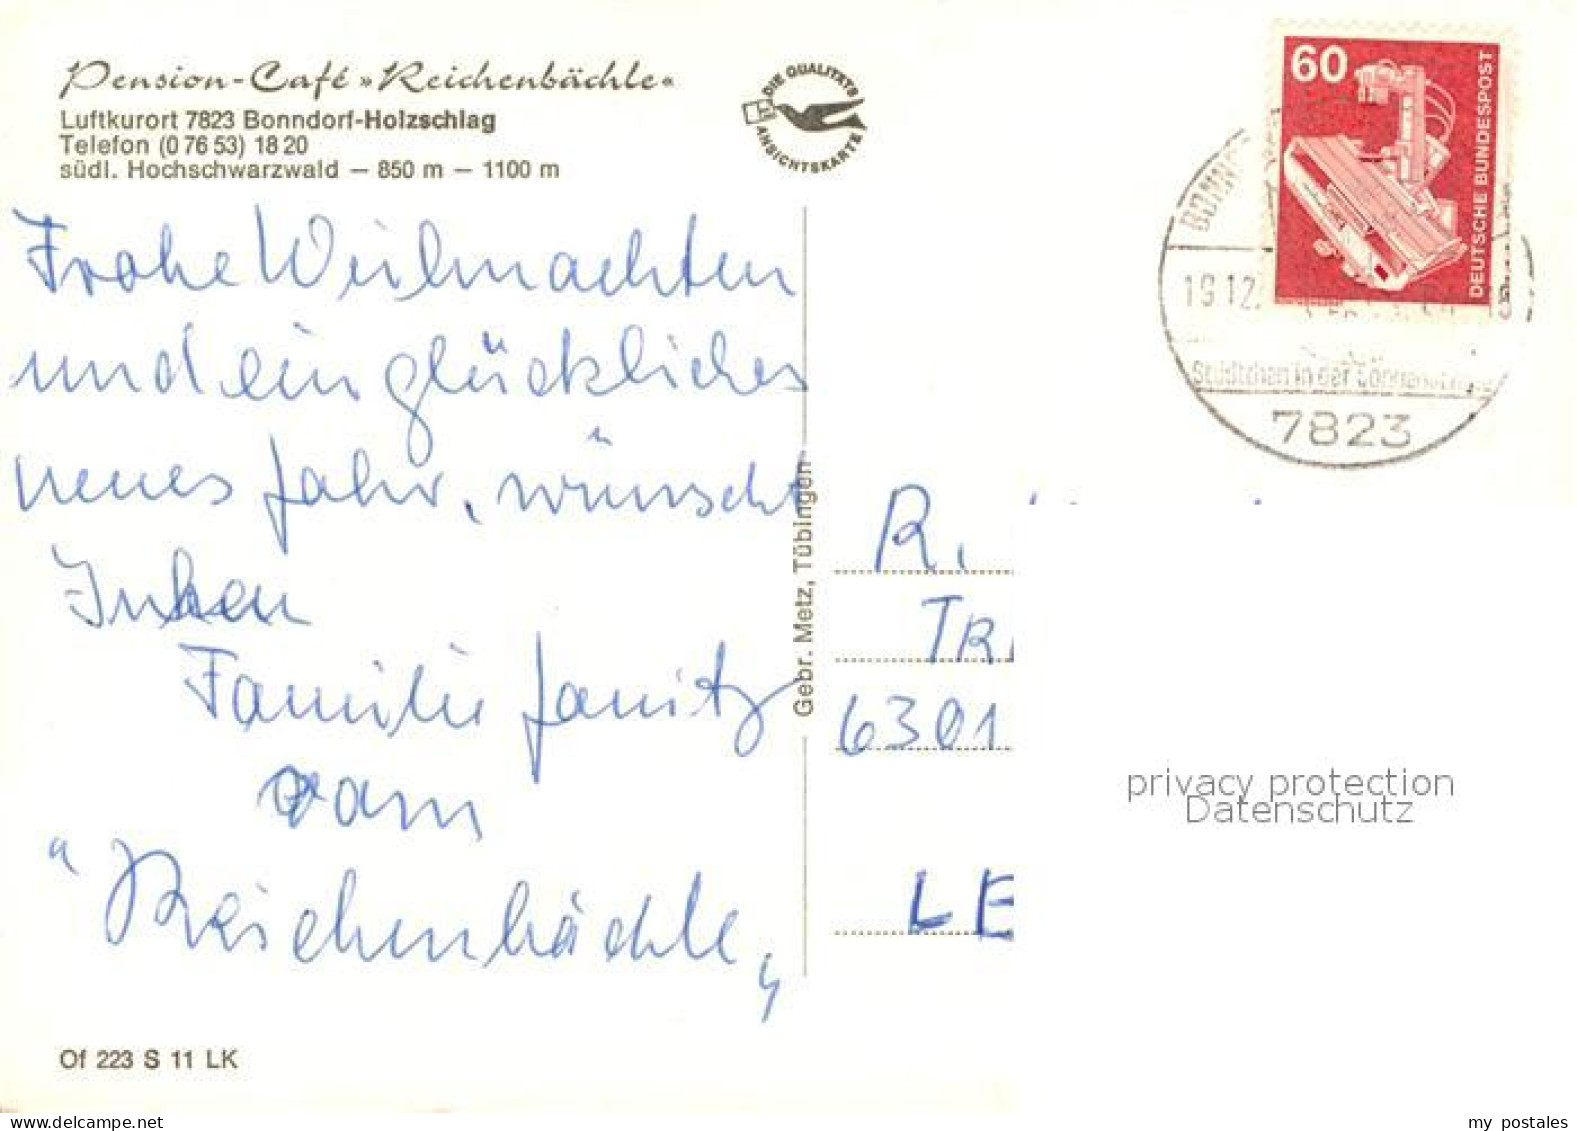 Pension-Café »Reichenbächle«
Luftkurort 7823 Bonndorf-Holzschlag
Telefon (0 76 53) 18 20
südl. Hochschwarzwald – 850 m – 1100 m
DIE QUALITÄTS
ANSICHTSKARTE
60
DEUTSCHE BUNDESPOST
BONN
19.12.
Städtchen in der
7823
Frohe Weihnachten
und ein glückliches
neues Jahr, wünscht
Ihnen
Familie Janitz
vom
"Reichenbächle„
Gebr. Metz, Tübingen
R.
TR
6301
LE
privacy protection
Datenschutz
Of 223 S 11 LK
my postales